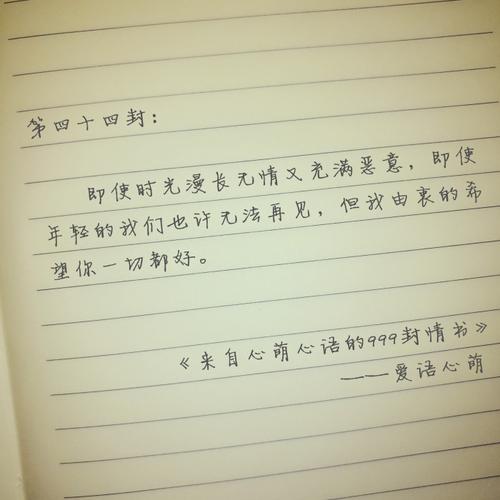 第四十四封：
即使时光漫长无情又充满恶意，即使
年轻的我们也许无法再见，但我由衷的希
望你一切都好。
《来自心萌心语的999封情书》
——爱语心萌